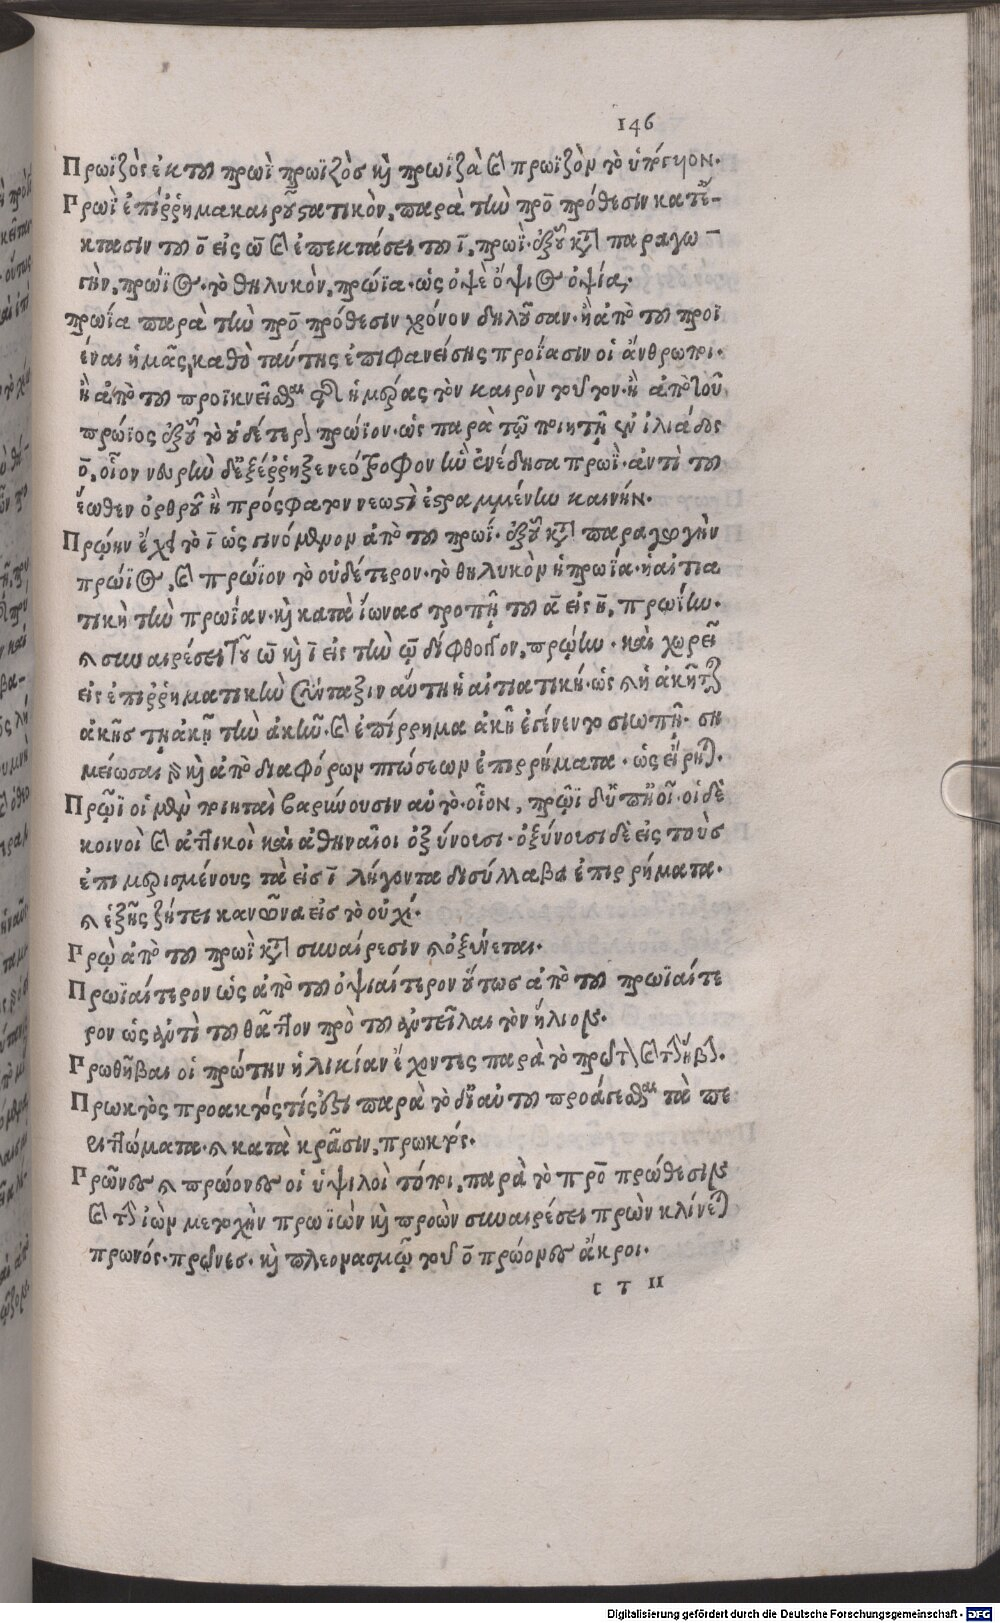 146
Πρωϊζὸς ἐκ τοῦ πρωῒ πρωϊζὸς καὶ πρωϊζὰ καὶ πρωϊζὸν τὸ ὕστερον.
Πρωῒ ἐπίρρημα καιροῦ στατικὸν, παρὰ τὴν πρὸ πρόθεσιν κατ' ἔ-
κτασιν τοῦ ο εἰς ω καὶ ἐπεκτάσει τοῦ ι, πρωΐ· ἐξ οὗ κατὰ παραγω-
γὴν, πρώϊος· τὸ θηλυκὸν, πρώϊα· ὡς ὀψὲ ὄψιος ὀψία.
πρωΐα παρὰ τὴν πρὸ πρόθεσιν χρόνον δηλοῦσαν· ἢ ἀπὸ τοῦ προϊ
έναι ἡμᾶς, καθὸ ταύτης ἐπιφανείσης προΐασιν οἱ ἄνθρωποι·
ἢ ἀπὸ τοῦ προϊκνεῖσθαι τῆς ἡμέρας τὸν καιρὸν τοῦτον· ἢ ἀπὸ τοῦ
πρώϊος ἐξ οὗ τὸ οὐδέτερον πρώϊον· ὡς παρὰ τῷ ποιητῇ ἐν ἰλιάδος
ο, οἷον νευρὴν δ' ἐξέρρηξε νεόστροφον ἣν ἐνέδησα πρωΐ· ἀντὶ τοῦ
ἕωθεν ὄρθρου ἢ πρόσφατον νεωστὶ ἐστραμμένην καινήν.
Πρώην ἔχει τὸ ι ὡς γινόμενον ἀπὸ τοῦ πρωΐ· ἐξ οὗ κατὰ παραγωγὴν
πρώϊος, καὶ πρώϊον τὸ οὐδέτερον· τὸ θηλυκὸν ἡ πρωΐα· ἡ αἰτια
τικὴ τὴν πρωΐαν· καὶ κατὰ ἴωνας τροπῇ τοῦ α εἰς η, πρωΐην·
καὶ συναιρέσει τοῦ ω καὶ ι εἰς τὴν ῳ δίφθογγον, πρῴην· καὶ χωρεῖ
εἰς ἐπιρρηματικὴν σύνταξιν αὕτη ἡ αἰτιατική· ὡς καὶ ἡ ἀκὴ τῆς
ἀκῆς τῇ ἀκῇ τὴν ἀκήν· καὶ ἐπίρρημα ἀκὴ ἐγένεντο σιωπῇ· ση
μείωσαι δὲ καὶ ἀπὸ διαφόρων πτώσεων ἐπιρρήματα· ὡς εἴρηται.
Πρῶϊ οἱ μὲν ποιηταὶ βαρύνουσιν αὐτό· οἷον, πρῶϊ δ' ὑπηοῖοι· οἱ δὲ
κοινοὶ καὶ ἀττικοὶ καὶ ἀθηναῖοι ὀξύνουσι· ὀξύνουσι δὲ εἰς τοὺς
ἐπιμερισμένους τὰ εἰς ι λήγοντα δισύλλαβα ἐπιρρήματα·
καὶ ἑξῆς ζήτει κανόνα εἰς τὸ οὐχί.
Πρῲ ἀπὸ τοῦ πρωῒ κατὰ συναίρεσιν καὶ ὀξύνεται.
Πρωϊαίτερον ὡς ἀπὸ τοῦ ὀψιαίτερον οὕτως ἀπὸ τοῦ πρωϊαίτε
ρον ὡς ἀντὶ τοῦ θᾶττον πρὸ τοῦ ἀντεῖλαι τὸν ἥλιον.
Πρωθῆβαι οἱ πρώτην ἡλικίαν ἔχοντες παρὰ τὸ πρῶτον καὶ τὴν ἥβην.
Πρωκτὸς προακτός τίς ἐστι παρὰ τὸ δι' αὐτοῦ προάγεσθαι τὰ πε
ριττώματα· καὶ κατὰ κρᾶσιν, πρωκτός.
Πρῶνες καὶ πρώονες οἱ ὑψηλοὶ τόποι, παρὰ τὸ πρὸ πρώθεσιν
καὶ τὴν ἰὼν μετοχὴν πρωϊὼν καὶ προὼν συναιρέσει πρὼν κλίνεται
πρωνός· πρῶνες· καὶ πλεονασμῷ τοῦ ο πρώονες ἄκροι.
C T II
Digitalisierung gefördert durch die Deutsche Forschungsgemeinschaft - DFG